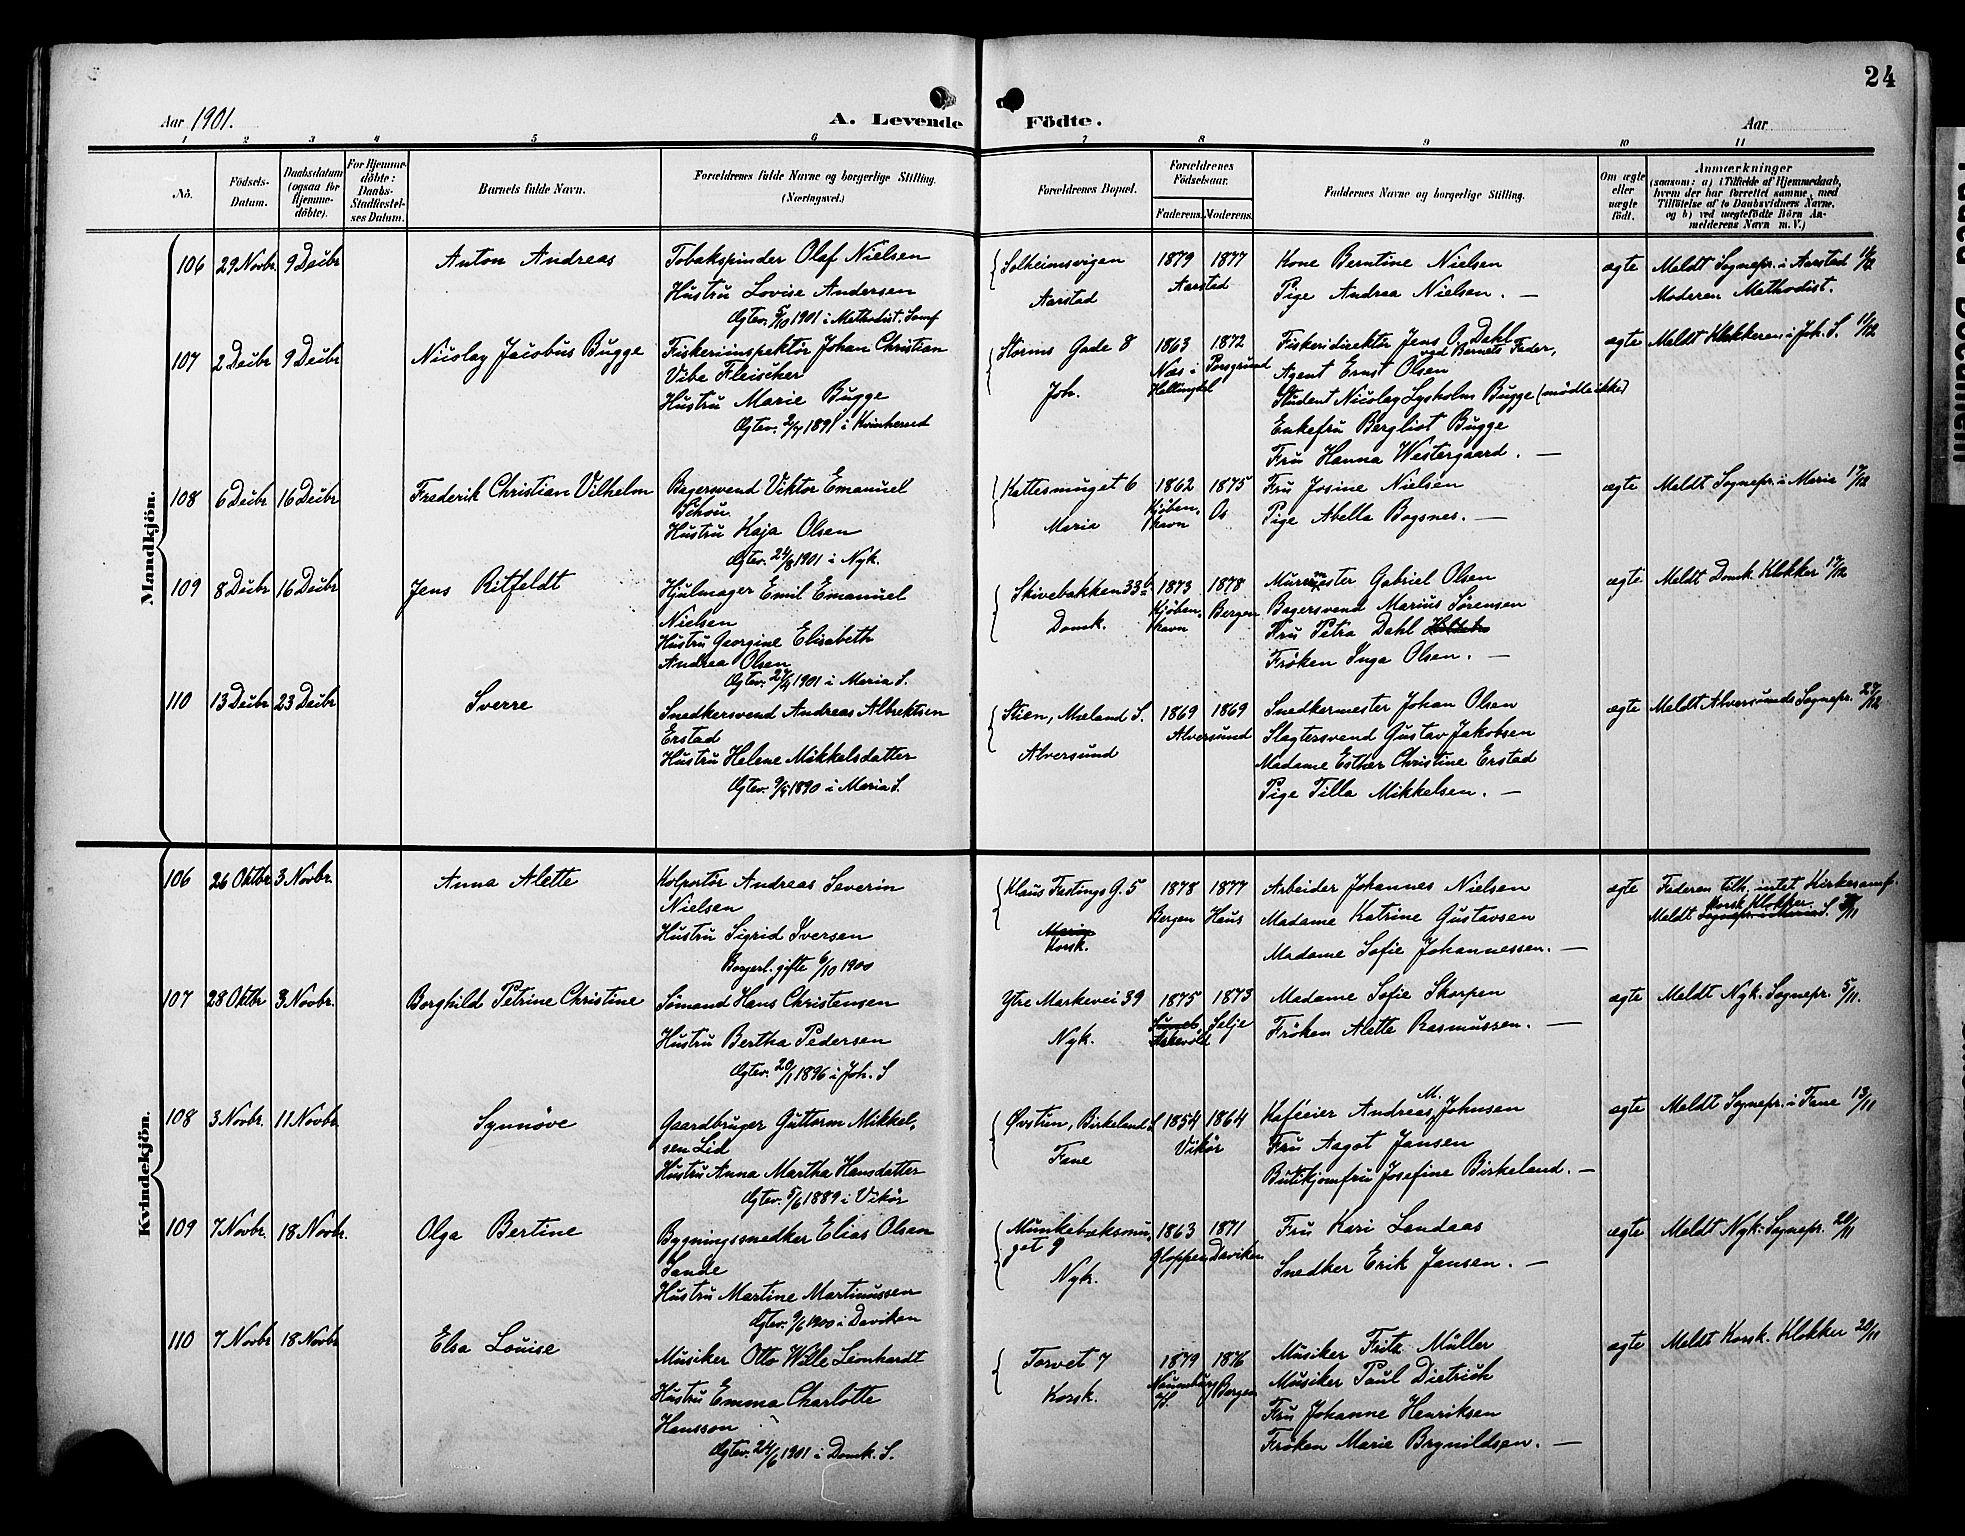 24
Aar 1901.
A. Levende Födte.
Aar
1 2 3 4 5 6 7 8 9 10 11
No.
Födsels-
Datum.
Daabsdatum
(ogsaa for
Hjemme-
döbte).
For Hjemme-
döbte:
Daabs-
Stadfæstel-
ses Datum.
Barnets fulde Navn.
Forældrenes fulde Navne og borgerlige Stilling.
(Næringsvei.)
Forældrenes Bopæl.
Forældrenes
Födselsaar.
Faderens. Moderens.
Faddernes Navne og borgerlige Stilling.
Om ægte
eller
uægte
födt.
Anmærkninger
(saasom: a) i Tilfælde af Hjemmedaab,
hvem der har forrettet samme, med
Tilföielse af to Daabsvidners Navne,
og b) ved uægtefödte Börn An-
melderens Navn m. V.)
Mandkjön.
106 29 Novbr 9 Decbr
Anton Andreas
Tobakspinder Olaf Nielsen
Hustru Lovise Andersen
Ægtev. 5/10 1901 i Methodist. Samf
Solheimsvigen
Aarstad
1879 1877
Aarstad
Kone Berntine Nielsen
Pige Andrea Nielsen. —
ægte
Meldt Sognepr. i Aarstad 11/12
Moderen Methodist.
107 2 Decbr 9 Decbr
Nicolay Jacobus Bugge
Fiskeriinspektör Johan Christian
Vibe Fleischer
Hustru Marie Bugge
Ægtev. 2/7 1891 i Kvinherred
Storms Gade 8
Joh.
1863 1872
Næs i Porsgrund
Hallingdal
Fiskeridirektör Jens O. Dahl
ved Barnets Fader,
Agent Ernst Olsen
Student Nicolay Lysholm Bugge (mödte ikke)
Enkefru Bergliot Bugge
Fru Hanna Westergaard. —
ægte
Meldt Klokkeren i Joh. S. 11/12
108 6 Decbr 16 Decbr
Frederik Christian Vilhelm
Bagersvend Viktor Emanuel
Schou
Hustru Kaja Olsen
Ægtev. 24/8 1901 i Nyk.
Kattesmuget 6
Marie
1862 1875
Kjöben- Os
havn
Fru Josine Nielsen
Pige Abella Bogsnes. —
ægte
Meldt Sognepr. i Maria 17/12
109 8 Decbr 16 Decbr
Jens Ritfeldt
Hjulmager Emil Emanuel
Nielsen
Hustru Georgine Elisabeth
Andrea Olsen
Ægtev. 27/4 1901 i Maria S.
Skivebakken 33 b
Domk.
1873 1878
Kjöben- Bergen
havn
Murmester Gabriel Olsen
Bagersvend Marius Sørensen
Fru Petra Dahl
Fröken Inga Olsen. —
ægte
Meldt Domk. Klokker 17/12
110 13 Decbr 23 Decbr
Sverre
Snedkersvend Andreas Albrektsen
Erstad
Hustru Helene Mikkelsdatter
Ægtev. 9/5 1890 i Maria S.
Stien, Mæland S.
Alversund
1869 1869
Alversund
Snedkermester Johan Olsen
Slagtersvend Gustav Jakobsen
Madame Esther Christine Erstad
Pige Tilla Mikkelsen. —
ægte
Meldt Alversunds Sognepr. 27/12
Kvindekjön.
106 26 Oktbr 3 Novbr.
Anna Alette
Kolportör Andreas Severin
Nielsen
Hustru Sigrid Iversen
Borgerl. gifte 6/10 1900
Klaus Fastings G. 5
Maria
Korsk.
1878 1877
Bergen Haus
Arbeider Johannes Nielsen
Madame Katrine Gustavsen
Madame Sofie Johannessen. —
ægte
Faderen tilh. intet Kirkesamf.
Korsk. Klokker
Meldt Sognepr. i Maria S. /11
107 28 Oktbr 3 Novbr.
Borghild Petrine Christine
Sömand Hans Christensen
Hustru Bertha Pedersen
Ægtev. 20/1 1896 i Joh. S
Ytre Markevei 39
Nyk.
1875 1873
Selje
Askevold
Madame Sofie Skorpen
Fröken Alette Rasmussen. —
ægte
Meldt Nyk. Sognepr. 5/11.
108 3 Novbr. 11 Novbr
Synnöve
Gaardbruger Guttorm Mikkel-
sen Lid
Hustru Anna Martha Hansdatter
Ægtev. 5/6 1889 i Vikör
Øvstun, Birkeland S
Fane
1854 1864
Vikör
Kaféeier Andreas M. Johnsen
Fru Aagot Jansen
Butikjomfru Josefine Birkeland. —
ægte
Meldt Sognepr. i Fane 13/11
109 7 Novbr. 18 Novbr.
Olga Bertine
Bygningssnedker Elias Olsen
Sande
Hustru Martine Martinussen
Ægtev. 9/6 1900 i Daviken
Munkebæksmu-
get 9
Nyk.
1863 1871
Gloppen Daviken
Fru Kari Landaas
Snedker Erik Jansen. —
ægte
Meldt Nyk. Sognepr. 20/11
110 7 Novbr 18 Novbr
Elsa Louise
Musiker Otto Wille Leonhardt
Hustru Emma Charlotte
Hansson
Ægtev. 24/6 1901 i Domk. S.
Torvet 7
Korsk.
1879 1876
Naumburg Bergen
Musiker Fritz Müller
Musiker Paul Dietrich
Fru Johanne Henriksen
Fröken Marie Brynildsen. —
ægte
Meldt Korsk. Klokker 20/11